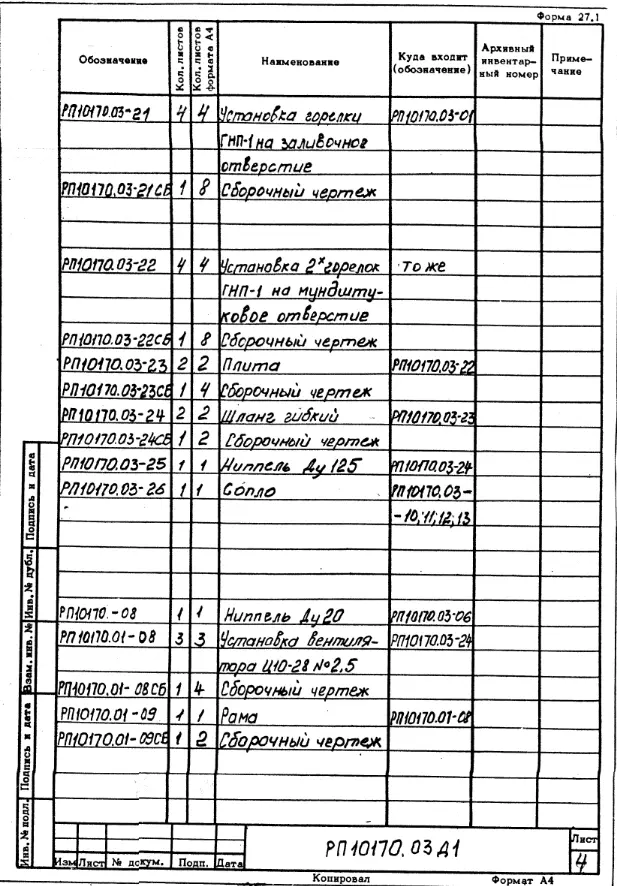 Форма 27.1
Обозначение Кол. листов Кол. листов формата А4 Наименование Куда входит (обозначение) Архивный инвентарный номер Примечание
РП10170.03-21 4 4 Установка горелки РП10170.03-01
ГНП-1 на заливочное
отверстие
РП10170.03-21СБ 1 8 Сборочный чертеж
РП10170.03-22 4 4 Установка 2х горелок То же
ГНП-1 на мундшту-
ковое отверстие
РП10170.03-22СБ 1 8 Сборочный чертеж
РП10170.03-23 2 2 Плита РП10170.03-22
РП10170.03-23СБ 1 4 Сборочный чертеж
РП10170.03-24 2 2 Шланг гибкий РП10170.03-23
РП10170.03-24СБ 1 2 Сборочный чертеж
РП10170.03-25 1 1 Ниппель Ду 125 РП10170.03-24
РП10170.03-26 1 1 Сопло РП10170.03-
-10;11;12;13
РП10170.-08 1 1 Ниппель Ду20 РП10170.03-06
РП10170.01-08 3 3 Установка вентиля- РП10170.03-24
тора Ц10-28 №2,5
РП10170.01-08СБ 1 4 Сборочный чертеж
РП10170.01-09 1 1 Рама РП10170.01-08
РП10170.01-09СБ 1 2 Сборочный чертеж
Инв.№ подл. Подпись и дата Взам. инв.№ Инв.№ дубл. Подпись и дата
РП10170.03Д1
Лист
4
Изм Лист № докум. Подп. Дата
Копировал Формат А4